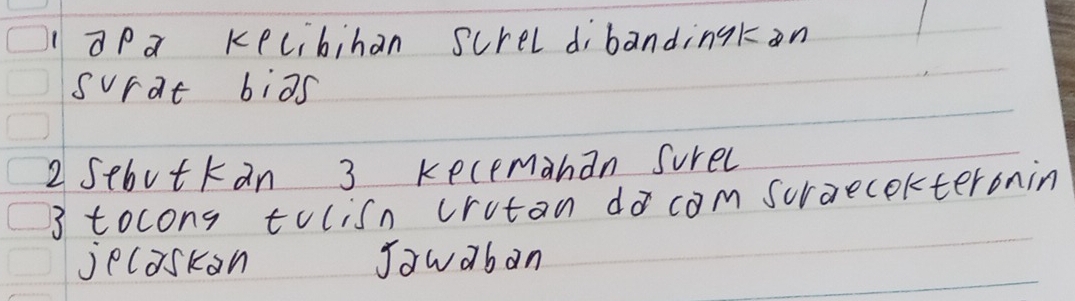 1 apa kelibihan surel dibandingkan
surat bias
2 Sebutkan 3 kelemahan surel
3 tolong tulisn urutan dalam suraelekteronin
jelaskan Jawaban